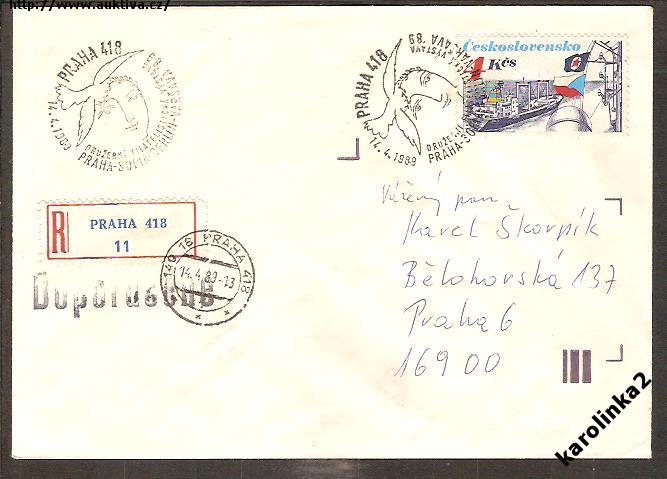 http://www.auktiva.cz/
PRAHA 418
14.4.1989
DRUŽEBNÍ FILATELISTICKÁ VÝSTAVA
PRAHA-SOFIA-BERLÍN-VARŠAVA '89
PRAHA 418
14.4.1989
DRUŽEBNÍ
PRAHA-SOFIA
VÝSTAVA
'89
Československo
1 Kčs
R
PRAHA 418
11
140 18 PRAHA 418
14.4.89-13
Doporučeně
Vážený pan
Karel Škorpík
Bělohorská 137
Praha 6
169 00
karolinka2